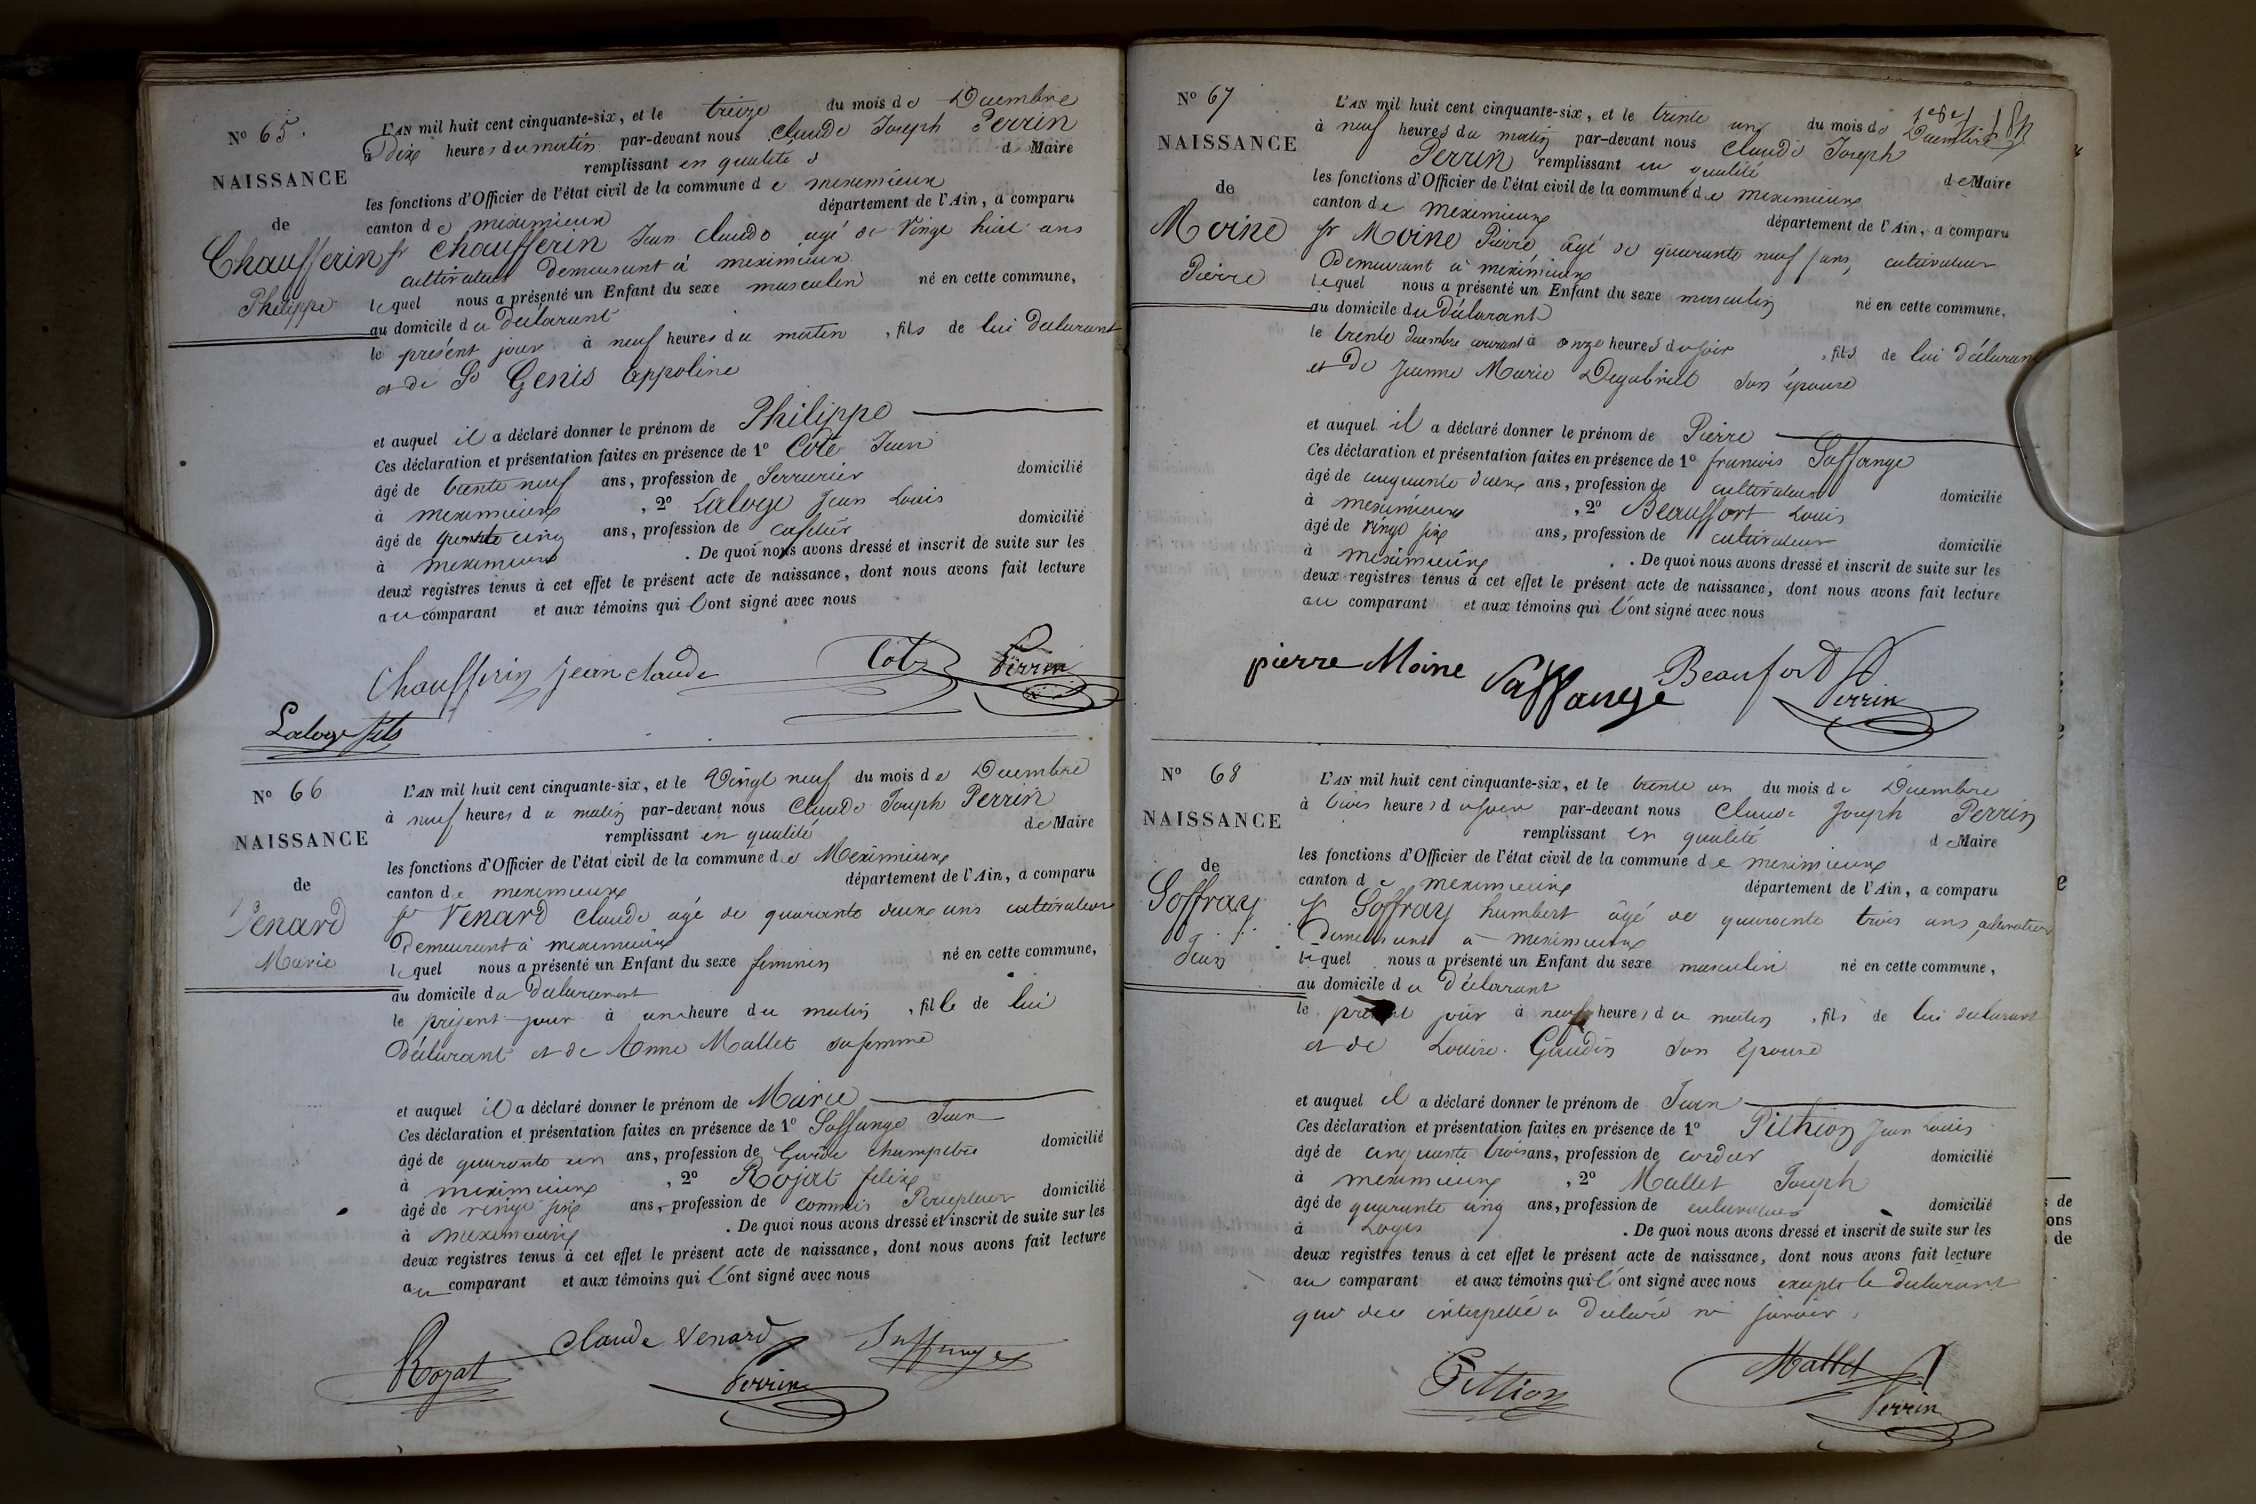 N° 65.
NAISSANCE
de
Chaufferin
Philippe
L'AN mil huit cent cinquante-six, et le treize du mois de Decembre
à Dix heures du matin par-devant nous Claude Joseph Perrin
remplissant en qualité d Maire
les fonctions d'Officier de l'état civil de la commune de meximieux
canton de meximieux département de l'Ain, a comparu
sr chaufferin Jean claude agé de Vingt huit ans
cultivateur Demeurant à meximieux
lequel nous a présenté un Enfant du sexe masculin né en cette commune,
au domicile du Déclarant
le présent jour à neuf heures du matin, fils de lui déclarant
et de St Genis Appoline
et auquel il a déclaré donner le prénom de Philippe
Ces déclaration et présentation faites en présence de 1° Cote Jean
âgé de trente neuf ans, profession de Serrurier domicilié
à meximieux, 2° Laloge Jean Louis
âgé de trente cinq ans, profession de cafetier domicilié
à meximieux. De quoi nous avons dressé et inscrit de suite sur les
deux registres tenus à cet effet le présent acte de naissance, dont nous avons fait lecture
au comparant et aux témoins qui l'ont signé avec nous
Chaufferin jean claude Cote Perrin
Laloge fils
N° 66
NAISSANCE
de
Venard
Marie
L'AN mil huit cent cinquante-six, et le Vingt neuf du mois de Decembre
à neuf heures du matin par-devant nous Claude Joseph Perrin
remplissant en qualité de Maire
les fonctions d'Officier de l'état civil de la commune de Meximieux
canton de meximieux département de l'Ain, a comparu
sr Venard Claude agé de quarante deux ans cultivateur
Demeurant à meximieux
lequel nous a présenté un Enfant du sexe feminin né en cette commune,
au domicile du Déclarant
le présent jour à un heure du matin, fille de lui
Déclarant et de Anne Mallet sa femme
et auquel il a déclaré donner le prénom de Marie
Ces déclaration et présentation faites en présence de 1° Saffange Jean
âgé de quarante un ans, profession de Garde champêtre domicilié
à meximieux, 2° Rojat felix
âgé de vingt six ans, profession de commis Percepteur domicilié
à meximieux. De quoi nous avons dressé et inscrit de suite sur les
deux registres tenus à cet effet le présent acte de naissance, dont nous avons fait lecture
au comparant et aux témoins qui l'ont signé avec nous
Rojat Claude Venard Saffange
Perrin
N° 67
NAISSANCE
de
Moine
Pierre
L'AN mil huit cent cinquante-six, et le trente un du mois de Decembre
à neuf heures du matin par-devant nous Claude Joseph
Perrin remplissant en qualité de Maire
les fonctions d'Officier de l'état civil de la commune de meximieux
canton de meximieux département de l'Ain, a comparu
sr Moine Pierre âgé de quarante neuf ans, cultivateur
Demeurant à meximieux
lequel nous a présenté un Enfant du sexe masculin né en cette commune,
au domicile du Déclarant
le trente decembre courant à onze heures du soir, fils de lui déclarant
et De Jeanne Marie Degabriel son épouse
et auquel il a déclaré donner le prénom de Pierre
Ces déclaration et présentation faites en présence de 1° francois Saffange
âgé de cinquante deux ans, profession de cultivateur domicilié
à meximieux, 2° Beauffort Louis
âgé de vingt six ans, profession de cultivateur domicilié
à meximieux. De quoi nous avons dressé et inscrit de suite sur les
deux registres tenus à cet effet le présent acte de naissance, dont nous avons fait lecture
au comparant et aux témoins qui l'ont signé avec nous
pierre Moine Saffange Beaufort Perrin
N° 68
NAISSANCE
de
Goffray
Jean
L'AN mil huit cent cinquante-six, et le trente un du mois de Decembre
à trois heures du soir par-devant nous Claude Joseph Perrin
remplissant en qualité de Maire
les fonctions d'Officier de l'état civil de la commune de meximieux
canton de meximieux département de l'Ain, a comparu
sr Goffray humbert âgé de quarante trois ans, cultivateur
Demeurant à meximieux
lequel nous a présenté un Enfant du sexe masculin né en cette commune,
au domicile du Déclarant
le présent jour à neuf heures du matin, fils de lui déclarant
et de Louise Gaudin son épouse
et auquel il a déclaré donner le prénom de Jean
Ces déclaration et présentation faites en présence de 1° Pithion Jean Louis
âgé de cinquante trois ans, profession de cordier domicilié
à meximieux, 2° Mallet Joseph
âgé de quarante cinq ans, profession de cultivateur domicilié
à Loyes. De quoi nous avons dressé et inscrit de suite sur les
deux registres tenus à cet effet le présent acte de naissance, dont nous avons fait lecture
au comparant et aux témoins qui l'ont signé avec nous excepté le déclarant
qui de ce interpellé a Déclaré ne savoir.
Pittion Mallet Perrin